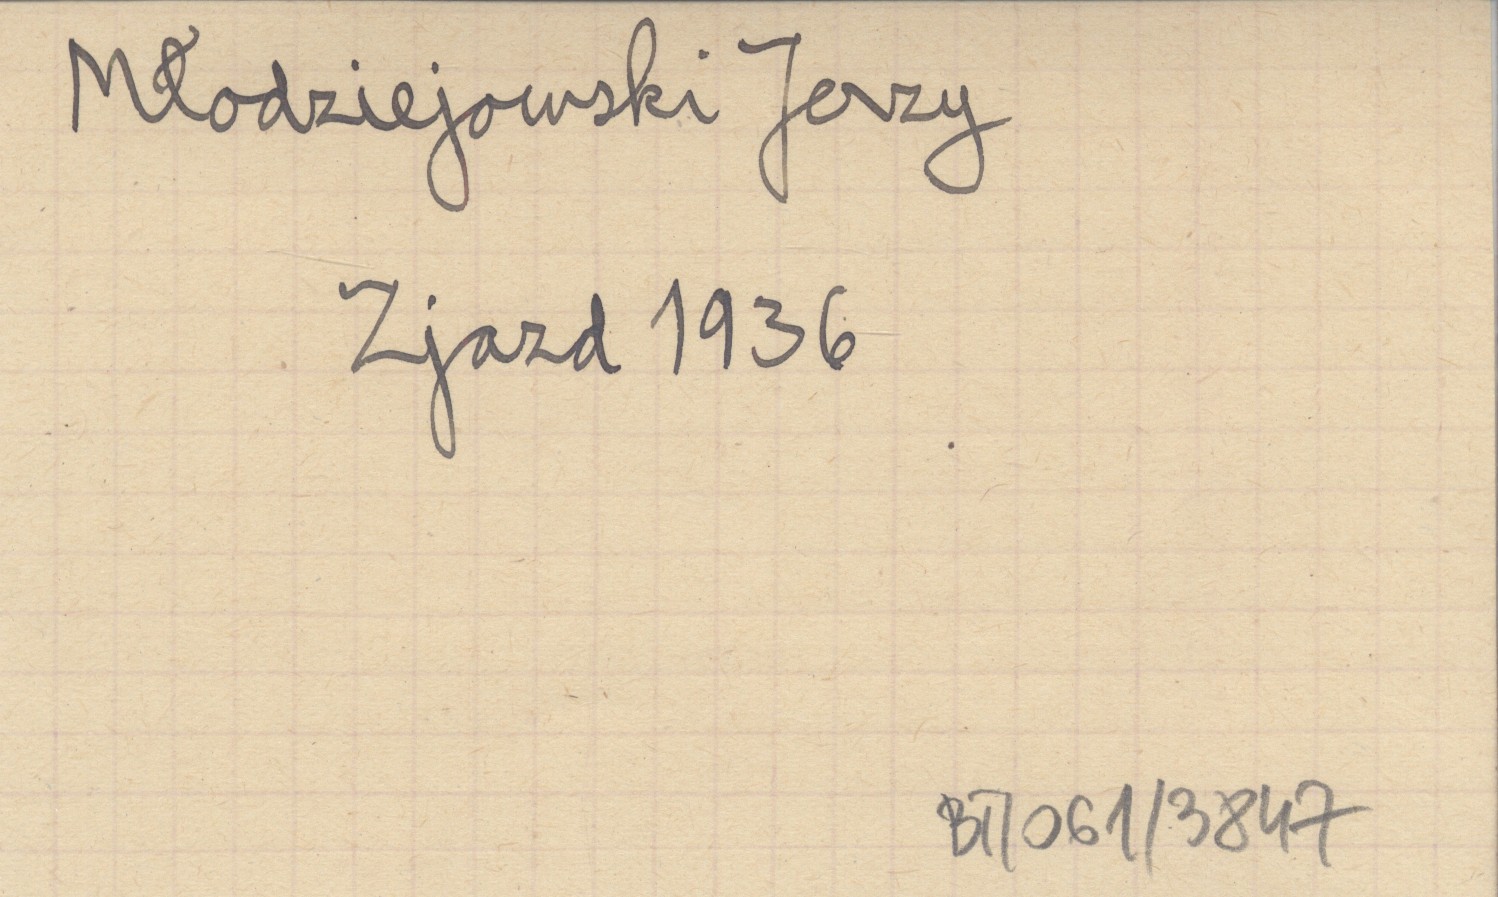 Młodziejowski Jerzy
Zjazd 1936
BT/061/3847